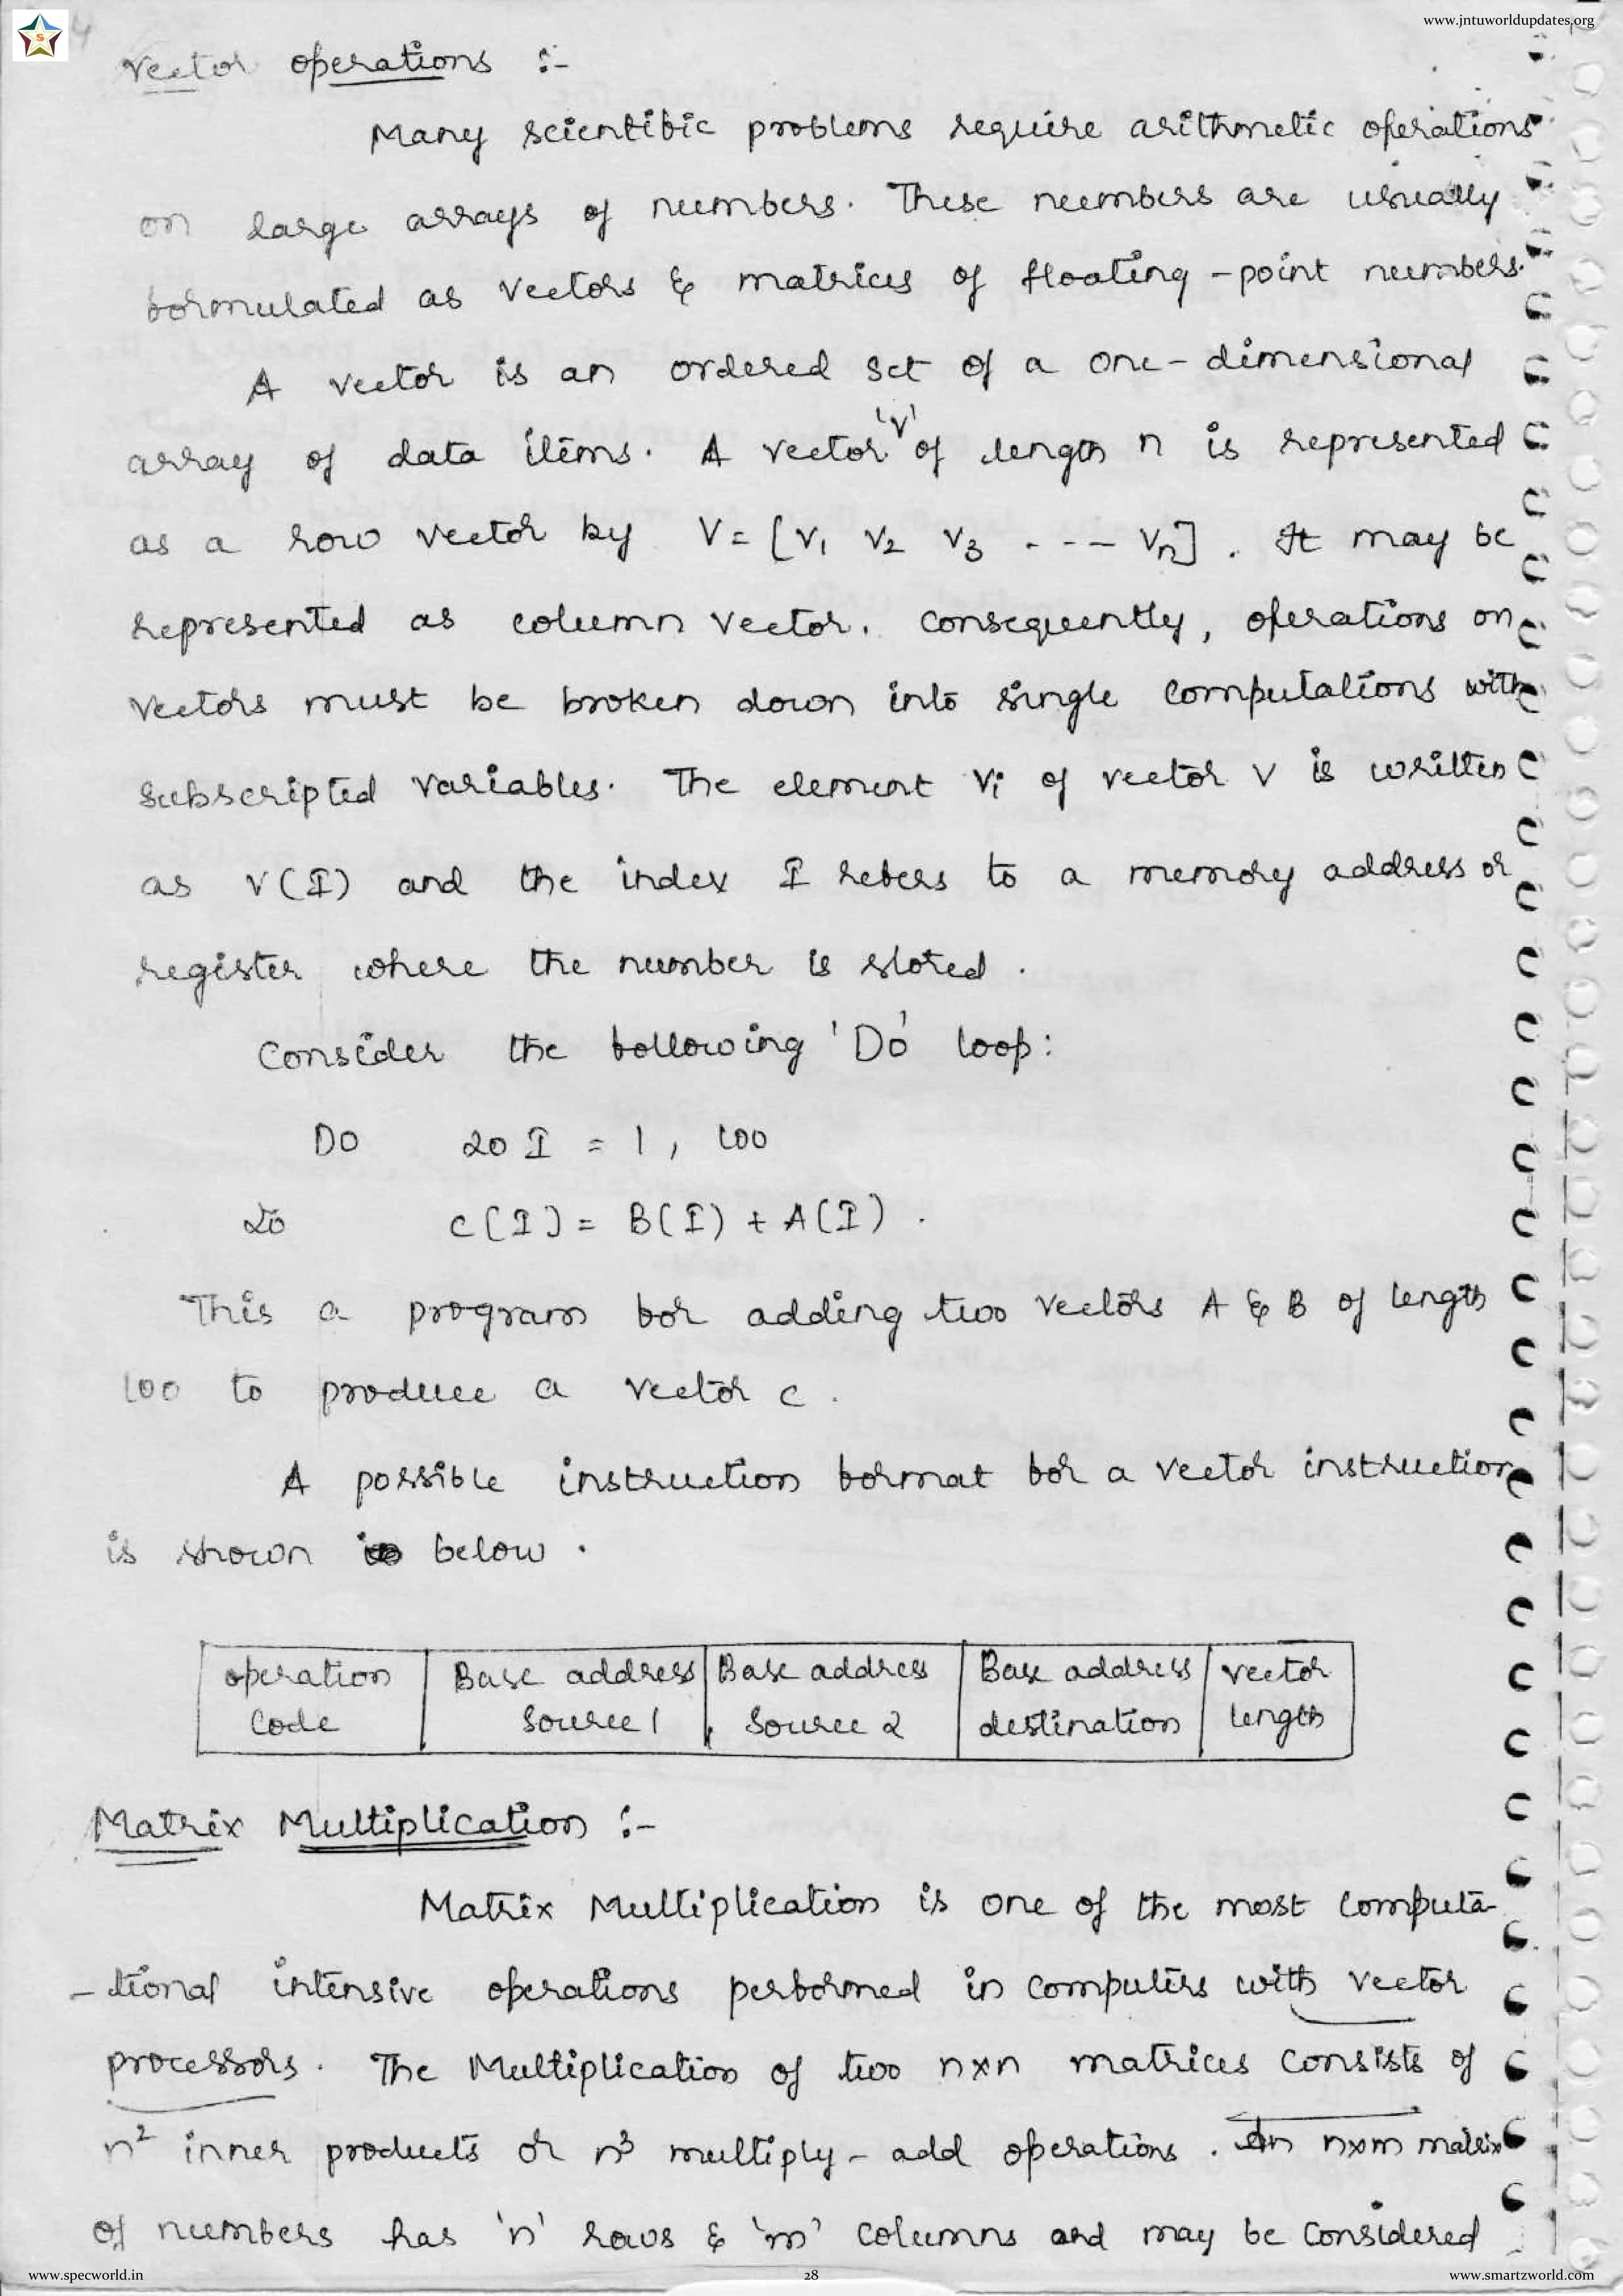 www.jntuworldupdates.org
S
4
Vector operations :-
Many scientific problems require arithmetic operations
on large arrays of numbers. These numbers are usually
formulated as vectors & matrices of floating-point numbers.
A vector is an ordered set of a one-dimensional
array of data items. A vector 'V' of length n is represented
as a row vector by V = [V1 V2 V3 ---- Vn]. It may be
represented as column vector. Consequently, operations on
vectors must be broken down into single computations with
subscripted variables. The element Vi of vector V is written
as V(I) and the index I refers to a memory address or
register where the number is stored.
Consider the following 'Do' loop:
DO 20 I = 1, 100
20 C(I) = B(I) + A(I).
This a program for adding two vectors A & B of length
100 to produce a vector C.
A possible instruction format for a vector instruction
is shown below.
operation Code | Base address Source 1 | Base address Source 2 | Base address destination | vector length
Matrix Multiplication :-
Matrix Multiplication is one of the most computa-
-tional intensive operations performed in computers with vector
processors. The Multiplication of two n×n matrices consists of
n² inner products or n³ multiply-add operations. An n×m matrix
of numbers has 'n' rows & 'm' columns and may be considered
www.specworld.in 28 www.smartzworld.com